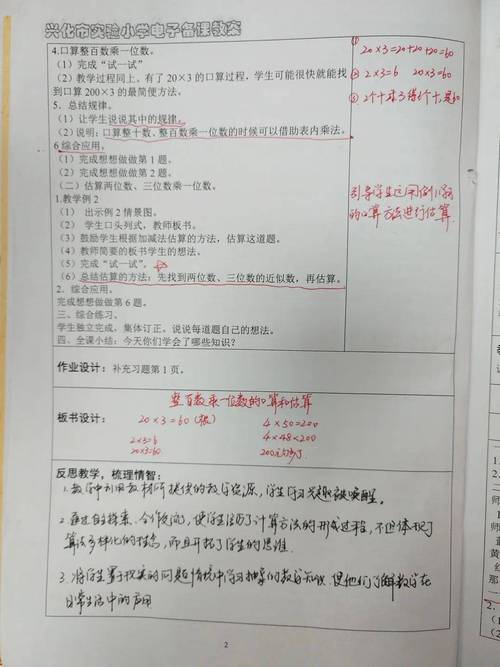 兴化市实验小学电子备课教案
4.口算整百数乘一位数。
（1）完成“试一试”
（2）教学过程同上。有了 20×3 的口算过程，学生可能很快就能找
到口算 200×3 的最简便方法。
5．总结规律。
（1）让学生说说其中的规律。
（2）说明：口算整十数、整百数乘一位数的时候可以借助表内乘法。
6 综合应用。
（1）完成想想做做第 1 题。
（2）完成想想做做第 2 题。
（二）估算两位数、三位数乘一位数。
1.教学例 2
（1） 出示例 2 情景图。
（2） 学生口头列式，教师板书。
（3）鼓励学生根据加减法估算的方法，估算这道题。
（4）教师简要的板书学生的想法。
（5）完成“试一试”。
（6）总结估算的方法：先找到两位数、三位数的近似数，再估算。
2．综合应用。
完成想想做做第 6 题。
三、综合练习。
学生独立完成，集体订正。说说每道题自己的想法。
四、全课小结：今天你们学会了哪些知识？
① 20×3=20+20+20=60
② 2×3=6 20×3=60
③ 2个十乘3得6个十,是60
引导学生运用例1学习
的口算方法进行估算
作业设计：补充习题第 1 页。
板书设计：
整百数乘一位数的口算和估算
20×3=60（棵）
2×3=6
20×3=60
4×50=200
4×48<200
200元够了
反思教学，梳理情智：
1.教学中利用教材所提供的教学资源，学生学习兴趣被唤醒。
2.通过自主探索、合作交流，使学生经历了计算方法的形成过程，不但体现了
算法多样化的理念，而且开拓了学生的思维.
3.将学生置于现实的问题情境中学习抽象的数学知识，使他们了解数学在
日常生活中的应用
2